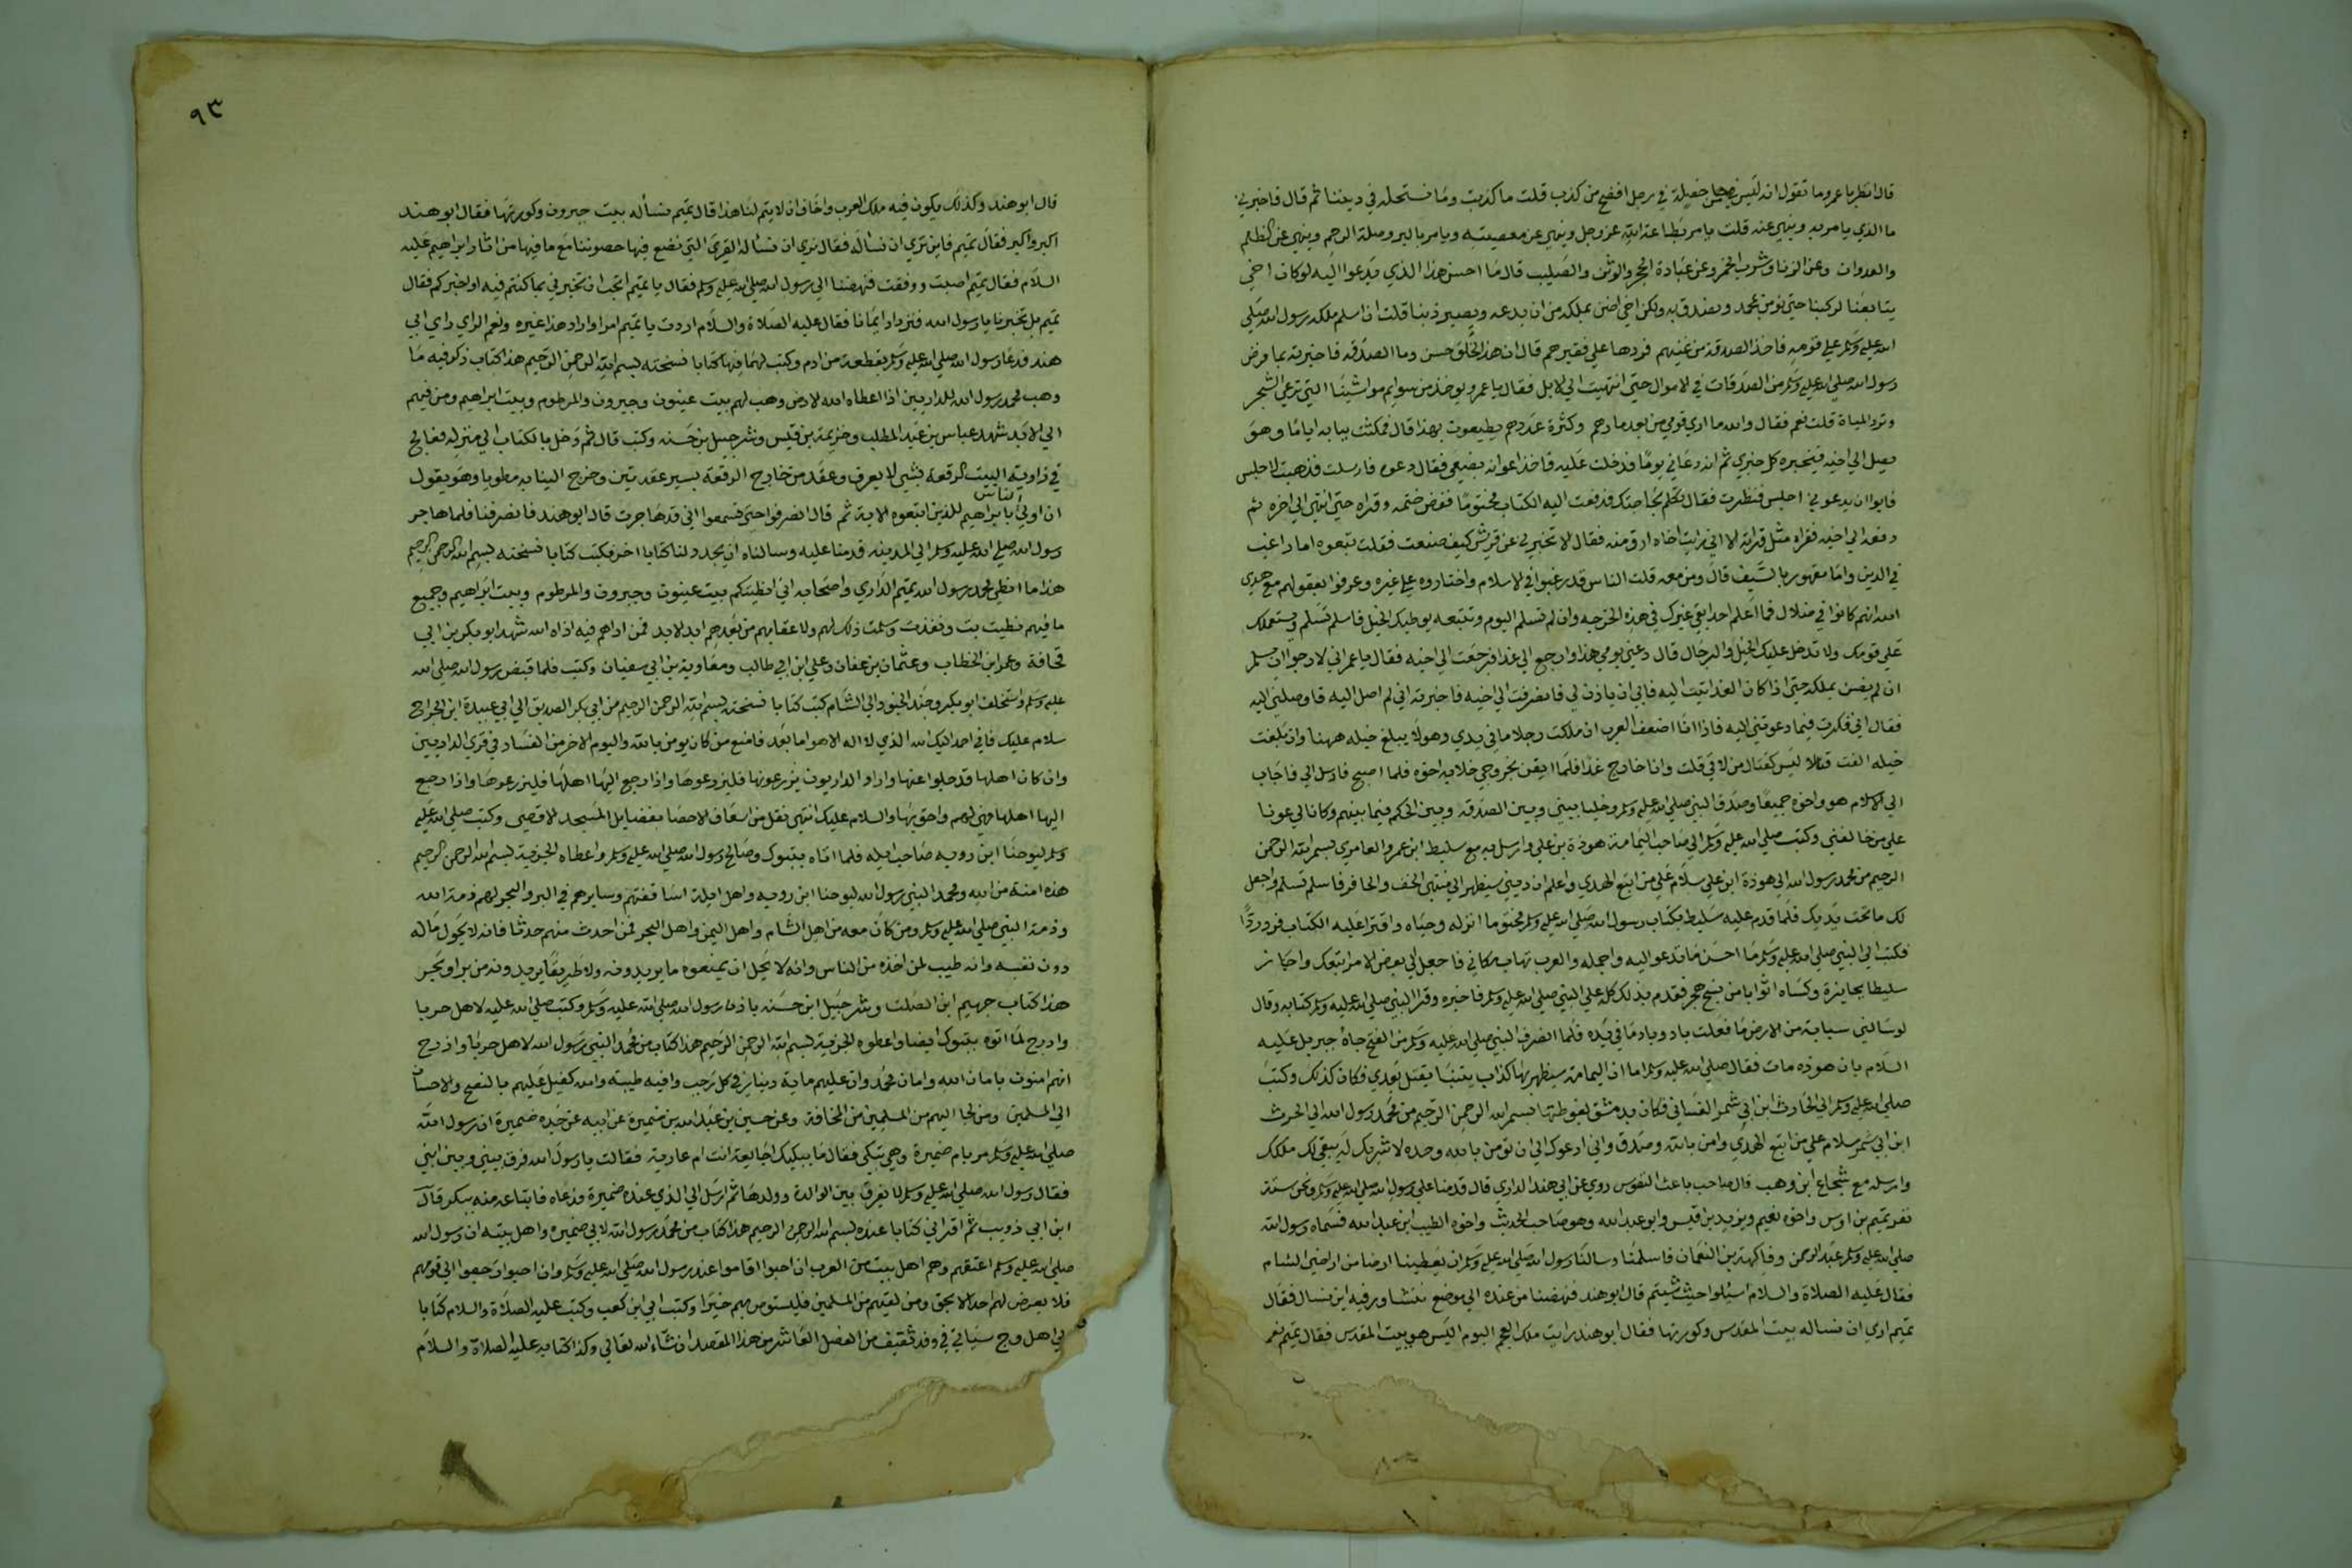 قال انظر يا عمرو ما تقول انه ليس من خصلة في رجل افضح من كذب قلت ما كذبت وما نستحله في ديننا ثم قال فاخبرني
ما الذي يامر به وينهي عنه قلت يامر بطاعة الله عز وجل وينهي عن معصيته ويامر بالبر وصلة الرحم وينهي عن الظلم
والعدوان وعن الزنا وشرب الخمر وعن عبادة الحجر والوثن والصليب قال ما احسن هذا الذي يدعوا اليه لو كان اخي
يتابعنا لركبنا حتي نومن بمحمد ونصدق به ولكن اخي اضن بملكه من ان يدعه ويصير ذنبا قلت ان اسلم ملكه رسول الله صلي
الله عليه وسلم علي قومه فاخذ الصدقة من غنيهم فردها علي فقيرهم قال ان هذا الخلق حسن وما الصدقه فاخبرته بما فرض
رسول الله صلي الله عليه وسلم من الصدقات في الاموال حتي انتهيت الي الابل فقال يا عمرو يوخذ من سوايم مواشينا التي ترعي الشجر
وترد المياة قلت نعم فقال والله ما اري قومي من بعد دارهم وكثرة عددهم يطيعون بهذا قال فمكثت ببابه اياما وهو
يصل الي اخيه فيخبره كل خبري ثم انه دعاني يوما فدخلت عليه فاخذ اعوانه بضبعي فقال دعوه فارسلت فذهبت لاجلس
فابوا ان يدعوني اجلس فنظرت فقال تكلم بحاجتك فدفعت اليه الكتاب مختوما ففض ختمه وقراه حتي انتهي الي اخره ثم
دفعه الي اخيه فقراه مثل قراته الا اني رايت اخاه ارق منه فقال لا تخبرني عن قريش كيف صنعت فقلت تبعوه اما راغب
في الدين واما مقهور بالسيف قال ومن معه قلت الناس قد رغبوا في الاسلام واختاروه علي غيره وعرفوا بعقولهم مع هدي
الله انهم كانوا في ضلال فما اعلم احدا بقي غيرك في هذه الخرجه وان لم تسلم اليوم وتتبعه يوطيك الخيل فاسلم تسلم ويستعملك
علي قومك ولا تدخل عليك الخيل والرجال قال دعني يومي هذا وارجع الي غدا فرجعت الي اخيه فقال يا عمر اني لارجوا ان يسلم
ان لم يضن بملكه حتي اذا كان الغد اتيت اليه فابي ان ياذن لي فانصرفت الي اخيه فاخبرته اني لم اصل اليه فاوصلني اليه
فقال اني فكرت فيما دعوتني اليه فاذا انا اضعف العرب ان ملكت رجلا ما في يدي وهو لا يبلغ خيله ههنا وان بلغت
خيله الفت قتالا ليس كقتال من لاقي قلت وانا خارج غدا فلما ايقن بخروجي خلا به اخوه فلما اصبح فارسل الي فاجاب
الي الاسلام هو واخوه جميعا وصدق النبي صلي الله عليه وسلم وخليا بيني وبين الصدقه وبين الحكم فيما بينهم وكانا لي عونا
علي من خالفني وكتب صلي الله عليه وسلم الي صاحب اليمامة هوذة بن علي وارسل به مع سليط ابن عمر والعامري بسم الله الرحمن
الرحيم من محمد رسول الله الي هوذة ابن علي سلام علي من اتبع الهدي واعلم ان ديني سيظهر الي منتهي الخف والحافر فاسلم تسلم واجعل
لك ما تحت يديك فلما قدم عليه سليط بكتاب رسول الله صلي الله عليه وسلم مختوما انزله وحياه واقترا عليه الكتاب فرد ردا
فكتب الي النبي صلي الله عليه وسلم ما احسن ما تدعو اليه واجمله والعرب تهاب مكاني فاجعل لي بعض الامر اتبعك واجاز
سليطا بجايزة وكساه اثوابا من نسج هجر فقدم بذلك كله علي النبي صلي الله عليه وسلم فاخبره وقرا النبي صلي الله عليه وسلم كتابه وقال
لو سالني سيابة من الارض ما فعلت باد وباد ما في يده فلما انصرف النبي صلي الله عليه وسلم من الفتح جاه جبريل عليه
السلام بان هوذه مات فقال صلي الله عليه وسلم اما ان اليمامة سيظهر بها كذاب يتنبا يقتل بعدي فكان كذلك وكتب
صلي الله عليه وسلم الي الحارث ابن ابي شمر الغساني فكان بدمشق بغوطتها بسم الله الرحمن الرحيم من محمد رسول الله الي الحرث
ابن ابي شمر سلام علي من اتبع الهدي وامن بالله وصدق واني ادعوك الي ان تومن بالله وحده لا شريك له يبقي لك ملكك
وارسله مع شجاع ابن وهب قال صاحب باعث النفوس روي عن ابي هند الداري قال قدمنا علي رسول الله صلي الله عليه وسلم ونحن ستة
نفر تميم بن اوس واخوه نعيم ويزيد بن قيس وابو عبد الله وهو صاحب الحديث واخوه الطيب ابن عبد الله فسماه رسول الله
صلي الله عليه وسلم عبد الرحمن وفاكهة بن النعمان فاسلمنا وسالنا رسول الله صلي الله عليه وسلم ان يعطينا ارضا من اراضي الشام
فقال عليه الصلاة والسلام اسئلوا حيث شيتم قال ابو هند فنهضنا من عنده الي موضع نتشاور فيه اين نسال فقال
تميم اري ان نساله بيت المقدس وكورتها فقال ابو هند رايت ملك العجم اليوم اليس هو ببيت المقدس فقال تميم نعم
٩٣
قال ابو هند وكذلك يكون فيه ملك العرب واخاف ان لا يتم لنا هذا قال تميم نسأله بيت جبرون وكورتها فقال ابو هند
اكبر واكبر فقال تميم فاين تري ان نساله فقال نري ان نساله القري التي نضع فيها حصوننا مع ما فيها من اثار ابراهيم عليه
السلام فقال تميم اصبت ووفقت فنهضنا الي رسول الله صلي الله عليه وسلم فقال يا تميم اتحب ان تخبرني بما كنتم فيه او اخبركم فقال
تميم بل تخبرنا يا رسول الله فنزداد ايمانا فقال عليه الصلاة والسلام اردت يا تميم امرا واراد هذا غيره ونعم الراي راي ابي
هند فدعا رسول الله صلي الله عليه وسلم بقطعة من ادم وكتب لهما فيها كتابا نسخته بسم الله الرحمن الرحيم هذا كتاب ذكر فيه ما
وهب محمد رسول الله للداريين اذا اعطاه الله الارض وهب لهم بيت عينون وجيرون والمرطوم وبيت ابراهيم ومن فيهم
الي الابد شهد عباس بن عبد المطلب وخزيمة بن قيس وشرحبيل بن حسنه وكتب قال ثم دخل بالكتاب الي منزله فعالج
في زاوية البيت الرقعة بشي لا يعرف وعقد من خارج الرقعة بسير عقدتين وخرج الينا به مطويا وهو يقول
ان اولي الناس بابراهيم للذين اتبعوه الاية ثم قال انصرفوا حتي تسمعوا اني قد هاجرت قال ابو هند فانصرفنا فلما هاجر
رسول الله صلي الله عليه وسلم الي المدينه قدمنا عليه وسالناه ان يجدد لنا كتابا اخر فكتب كتابا نسخته بسم الله الرحمن الرحيم
هذا ما انطي محمد رسول الله تميم الداري واصحابه اني انطيتكم بيت عينون وجبرون والمرطوم وبيت ابراهيم وجميع
ما فيهم نطيت بت ونفذت وسلمت ذلك لهم ولاعقابهم من بعدهم ابد لابد فمن اذاهم فيه اذاه الله شهد ابو بكر بن ابي
قحافة وعمر ابن الخطاب وعثمان بن عفان وعلي ابن ابي طالب ومعاوية بن ابي سفيان وكتب فلما قبض رسول الله صلي الله
عليه وسلم واستخلف ابو بكر وجند الجنود الي الشام كتب كتابا نسخته بسم الله الرحمن الرحيم من ابي بكر الصديق الي ابي عبيدة ابن الجراح
سلام عليك فاني احمد اليك الله الذي لا اله الا هو اما بعد فامنع من كان يومن بالله واليوم الاخر من الفساد في قري الداريين
وان كان اهلها قد جلوا عنها واراد الداريون يزرعونها فليزرعوها واذا رجع اليها اهلها فليزرعوها واذا رجع
اليها اهلها فهي لهم واحق بها والسلام عليك انتهي نقل من اسعاف الاخصا بفضايل المسجد الاقصي وكتب صلي الله عليه
وسلم ليوحنا ابن رويه صاحب ايله فلما اتاه بتبوك وصالح رسول الله صلي الله عليه وسلم واعطاه الجزية بسم الله الرحمن الرحيم
هذه امنة من الله ومحمد النبي رسول الله ليوحنا ابن رويه واهل ايلة اساقفتهم وسايرهم في البر والبحر لهم ذمة الله
وذمة النبي صلي الله عليه وسلم ومن كان معه من اهل الشام واهل اليمن واهل البحر فمن احدث منهم حدثا فانه لا يحول ماله
دون نفسه وانه طيب لمن اخذه من الناس وانه لا يحل ان يمنعوه ما يريدونه ولا طريقا يريدونه من بر او بحر
هذا كتاب جهيم ابن الصلت وشرحبيل ابن حسنه باذن رسول الله صلي الله عليه وسلم وكتب صلي الله عليه لاهل جربا
واذرح لما اتوه بتبوك ايضا واعطوه الجزية بسم الله الرحمن الرحيم هذا كتاب من محمد النبي رسول الله لاهل جربا واذرح
انهم امنون بامان الله وامان محمد وان عليهم ماية دينار في كل رجب وافيه طيبه والله كفيل عليهم بالنصح والاحسان
الي المسلمين ومن لجا اليهم من المسلمين من المخافة وعن حسين بن عبد الله بن ضميرة عن ابيه عن جده ضميرة ان رسول الله
صلي الله عليه وسلم مر بام ضميرة وهي تبكي فقال ما يبكيك اجايعة انت ام عارية فقالت يا رسول الله فرق بيني وبين ابني
فقال رسول الله صلي الله عليه وسلم لا يفرق بين الوالدة وولدها ثم ارسل الي الذي عنده ضميرة فدعاه فابتاعه منه ببكر قال
ابن ابي ذويب ثم اقراني كتابا عنده بسم الله الرحمن الرحيم هذا كتاب من محمد رسول الله لابي ضميره واهل بيته ان رسول الله
صلي الله عليه وسلم اعتقهم وهم اهل بيت من العرب ان احبوا اقاموا عند رسول الله صلي الله عليه وسلم وان احبوا رجعوا الي قومهم
فلا يعرض لهم احد الا بحق ومن لقيهم من المسلمين فليستوص بهم خيرا وكتب ابي ابن كعب وكتب عليه الصلاة والسلام كتابا
لاهل وج سياتي في وفد ثقيف من الفصل العاشر من هذا المقصد ان شاء الله تعالي وكذا كتابه عليه الصلاة والسلام